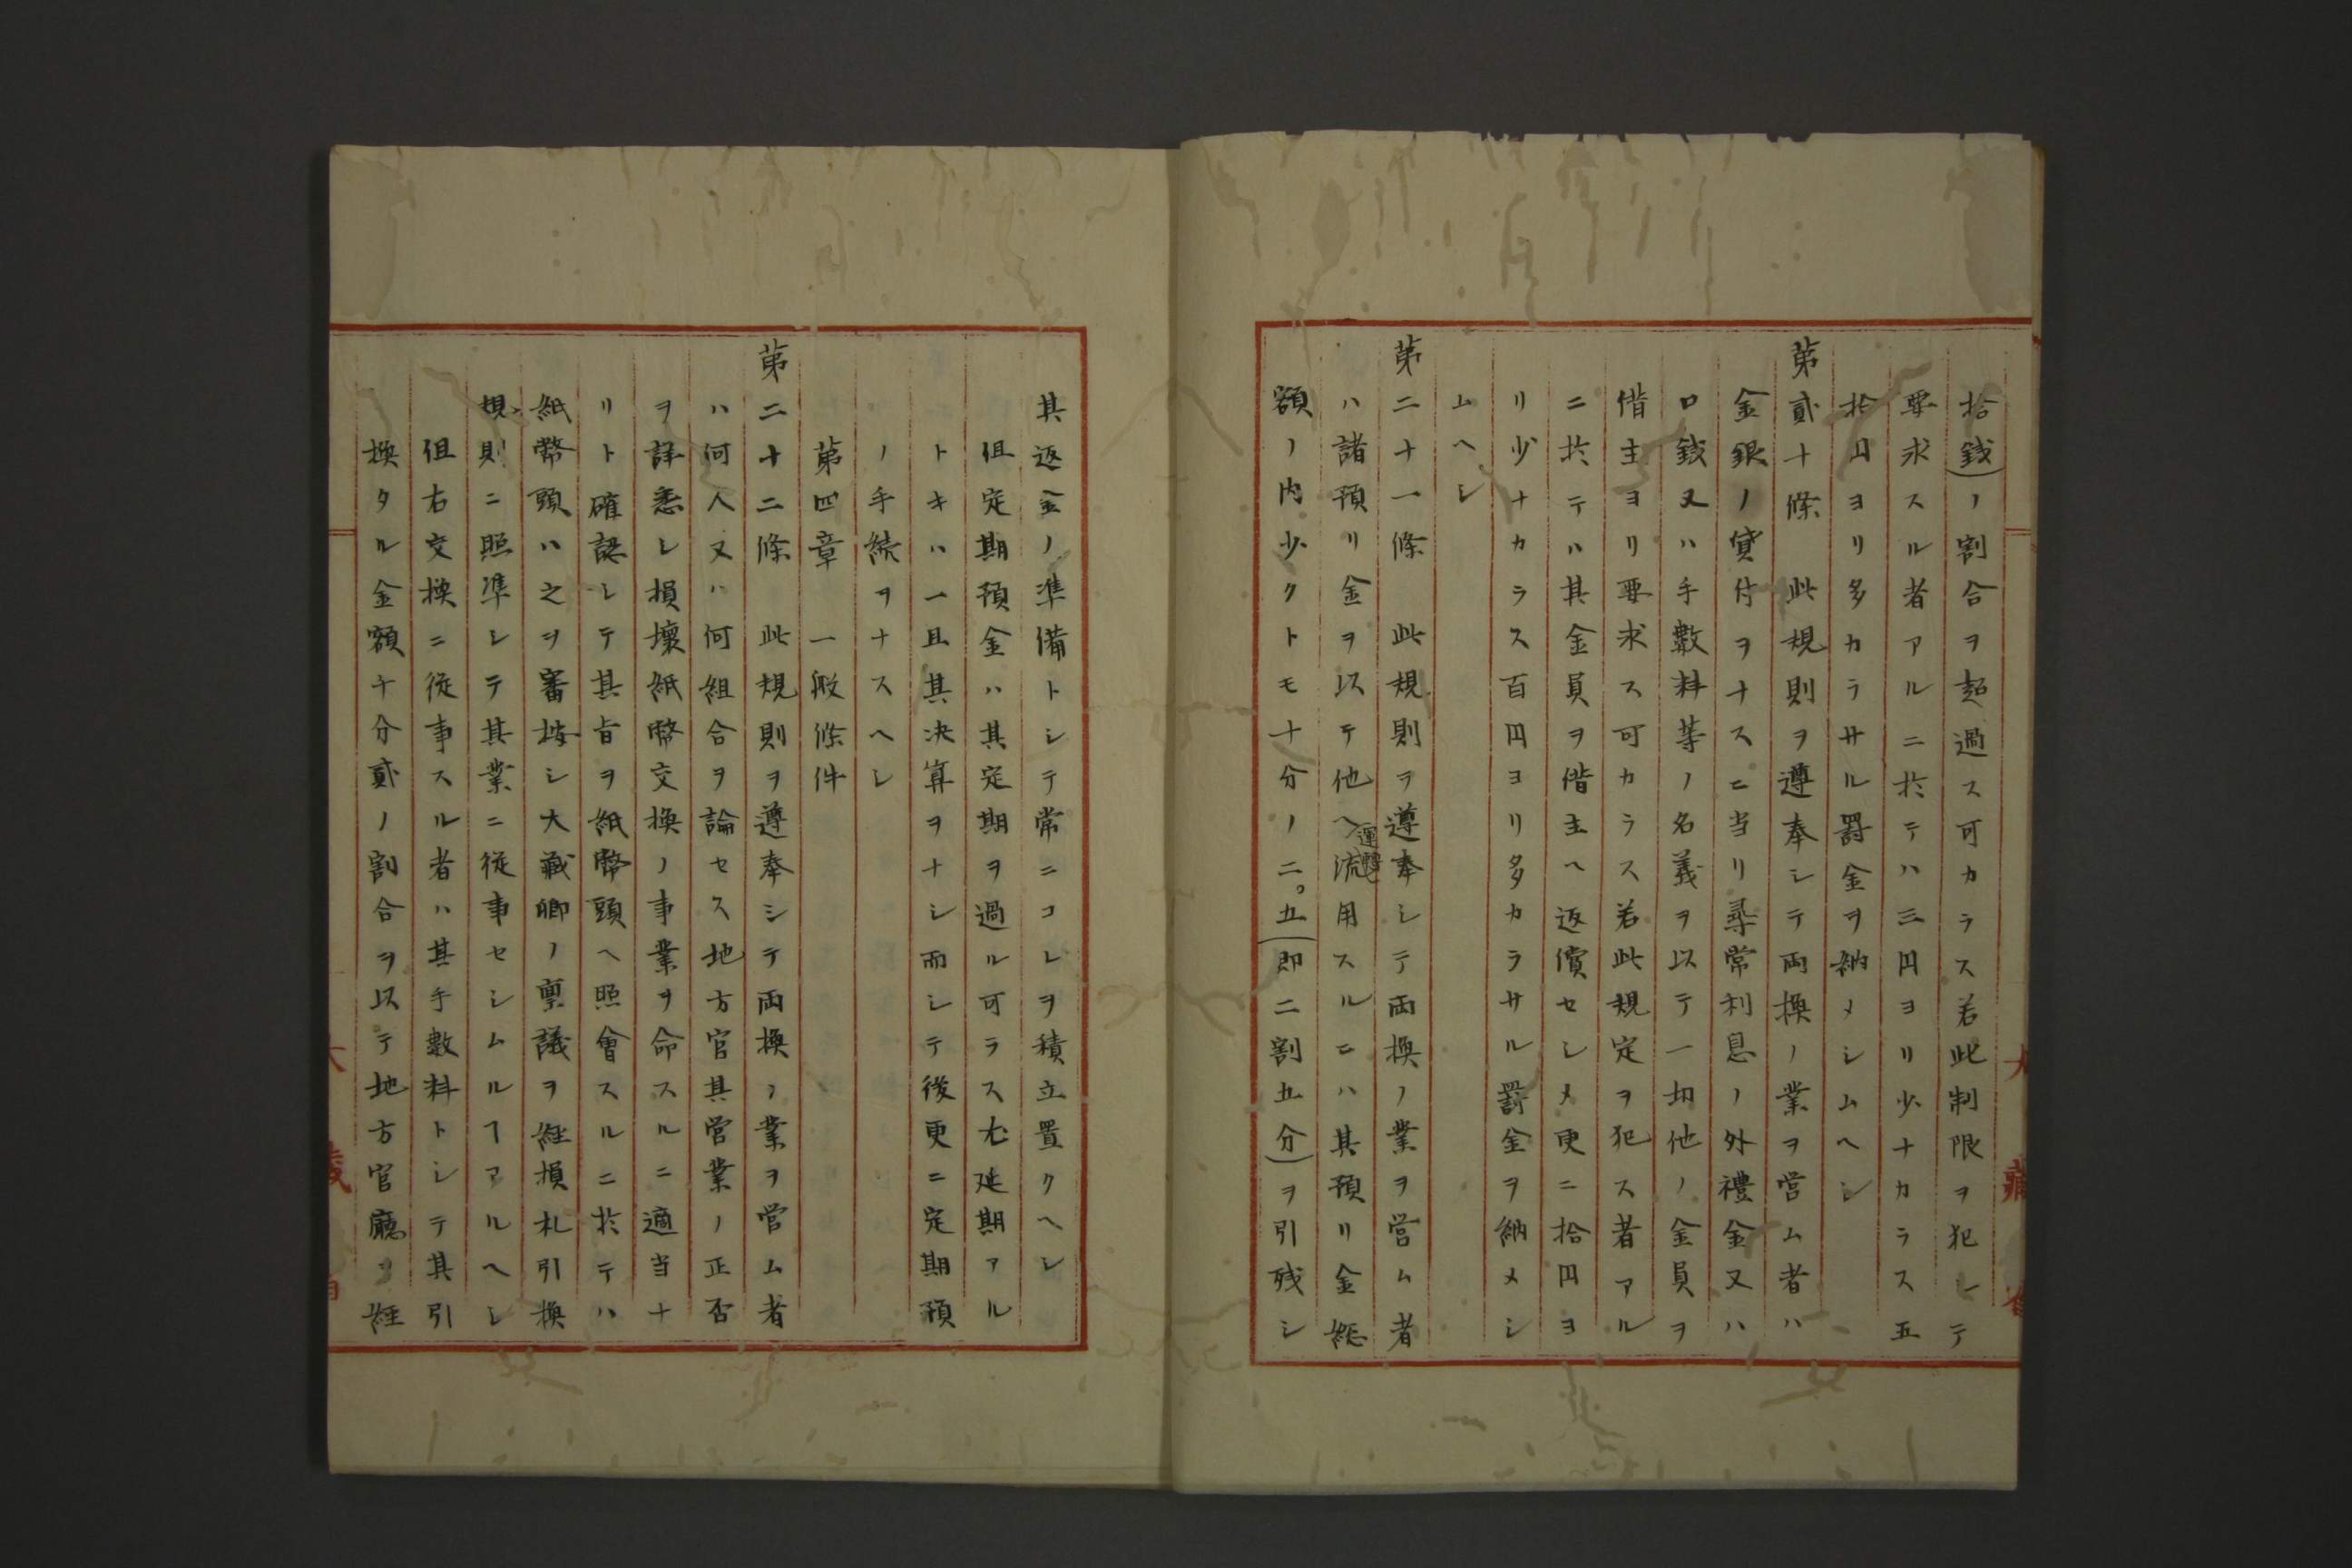 拾銭)ノ割合ヲ超過ス可カラス若此制限ヲ犯シテ
要求スル者アルニ於テハ三円ヨリ少ナカラス五
拾円ヨリ多カラサル罰金ヲ納メシムヘシ
第貳十條　此規則ヲ遵奉シテ両換ノ業ヲ営ム者ハ
金銀ノ貸付ヲナスニ当リ尋常利息ノ外禮金又ハ
口銭又ハ手數料等ノ名義ヲ以テ一切他ノ金員ヲ
借主ヨリ要求ス可カラス若此規定ヲ犯ス者アル
ニ於テハ其金員ヲ借主ヘ返償セシメ更ニ拾円ヨ
リ少ナカラス百円ヨリ多カラサル罰金ヲ納メシ
ムヘシ
第二十一條　此規則ヲ遵奉シテ両換ノ業ヲ営ム者
ハ諸預リ金ヲ以テ他ヘ流用スルニハ其預リ金総
運轉
額ノ内少クトモ十分ノ二。五(即二割五分)ヲ引残シ
大藏省
其返金ノ準備トシテ常ニコレヲ積立置クヘシ
但定期預金ハ其定期ヲ過ル可ラス尤延期アル
トキハ一旦其決算ヲナシ而シテ後更ニ定期預
ノ手続ヲナスヘシ
第四章　一般條件
第二十二條　此規則ヲ遵奉シテ両換ノ業ヲ営ム者
ハ何人又ハ何組合ヲ論セス地方官其営業ノ正否
ヲ詳悉シ損壞紙幣交換ノ事業ヲ命スルニ適当ナ
リト確認シテ其旨ヲ紙幣頭ヘ照會スルニ於テハ
紙幣頭ハ之ヲ審按シ大藏卿ノ稟議ヲ経損札引換
規則ニ照準シテ其業ニ従事セシムルヿアルヘシ
但右交換ニ従事スル者ハ其手數料トシテ其引
換タル金額十分貳ノ割合ヲ以テ地方官廳ヲ経